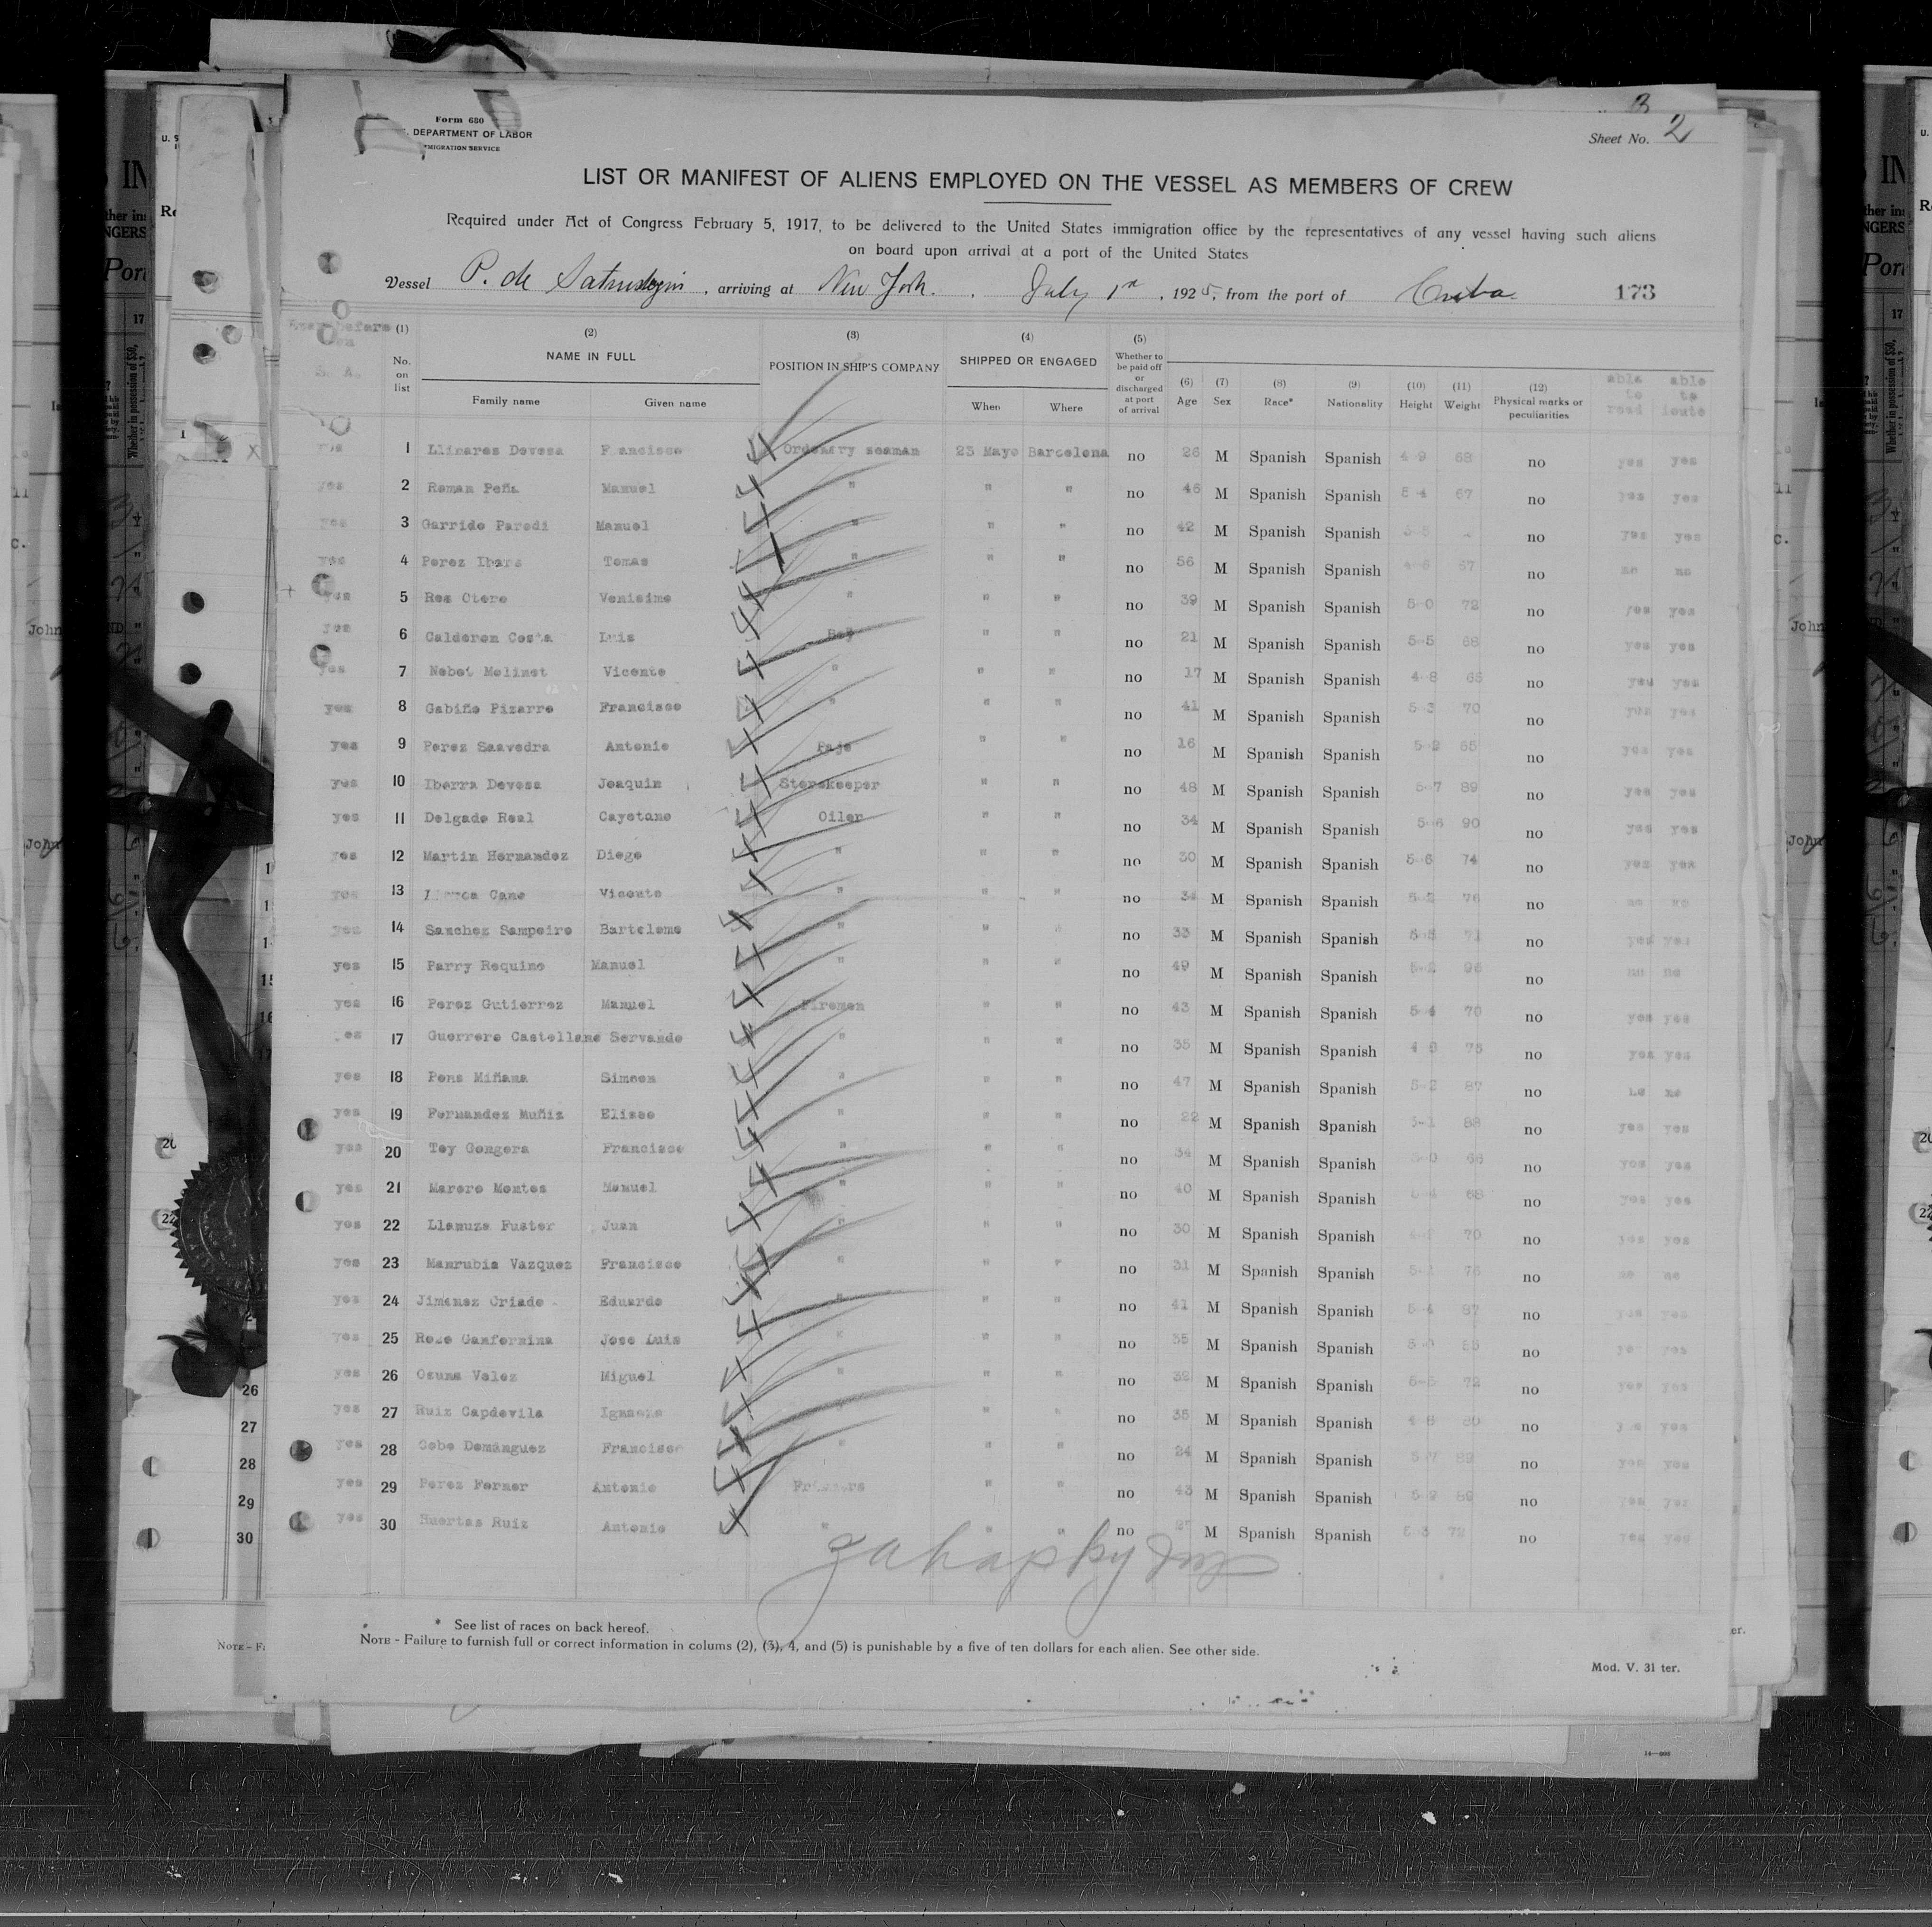 Form 680
DEPARTMENT OF LABOR
MIGRATION SERVICE
Sheet No. 2
LIST OR MANIFEST OF ALIENS EMPLOYED ON THE VESSEL AS MEMBERS OF CREW
Required under Act of Congress February 5, 1917, to be delivered to the United States immigration office by the representatives of any vessel having such aliens
on board upon arrival at a port of the United States
Vessel P. de Satrustegui, arriving at New York. July 1st, 1925, from the port of Cuba 173
(1) No. on list
(2) NAME IN FULL Family name Given name
(3) POSITION IN SHIP'S COMPANY
(4) SHIPPED OR ENGAGED When Where
(5) Whether to be paid off or discharged at port of arrival
(6) Age (7) Sex (8) Race* (9) Nationality (10) Height (11) Weight (12) Physical marks or peculiarities able to read able to
yes 1 Llinares Devesa Francisco Ordenary seaman 23 Mayo Barcelona no 26 M Spanish Spanish 4-9 68 no yes yes
yes 2 Roman Peña Manuel " " " no 46 M Spanish Spanish 5-4 67 no yes yes
yes 3 Garrido Paredi Manuel " " " no 42 M Spanish Spanish no yes yes
yes 4 Perez Tomas " " " no 56 M Spanish Spanish 67 no no no
yes 5 Rea Otero Venisimo " " " no 39 M Spanish Spanish 5-0 72 no yes yes
yes 6 Calderon Costa Luis Boy " " no 21 M Spanish Spanish 5-5 68 no yes yes
yes 7 Nebot Molinet Vicente " " " no 17 M Spanish Spanish 4-8 65 no yes yes
yes 8 Gabiño Pizarro Francisco " " " no 41 M Spanish Spanish 5-3 70 no yes yes
yes 9 Perez Saavedra Antonio Paje " " no 16 M Spanish Spanish 5-2 65 no yes yes
yes 10 Iborra Devesa Joaquin Storekeeper " " no 48 M Spanish Spanish 5-7 89 no yes yes
yes 11 Delgado Real Cayetano Oiler " " no 34 M Spanish Spanish 5-6 90 no yes yes
yes 12 Martin Hernandez Diego " " " no 30 M Spanish Spanish 5-6 74 no yes yes
yes 13 Cano Vicente " " " no 34 M Spanish Spanish 5-2 76 no no no
yes 14 Sanchez Sampeiro Bartolome " " " no 33 M Spanish Spanish 5-5 71 no yes yes
yes 15 Parry Requino Manuel " " " no 49 M Spanish Spanish 5-2 96 no no no
yes 16 Perez Gutierrez Manuel Firemen " " no 43 M Spanish Spanish 5-4 70 no yes yes
es 17 Guerrero Castellano Servando " " " no 35 M Spanish Spanish 4-9 78 no yes yes
yes 18 Pons Miñana Simeon " " " no 47 M Spanish Spanish 5-2 87 no no no
yes 19 Fernandez Muñiz Eliseo " " " no 22 M Spanish Spanish 5-1 88 no yes yes
yes 20 Toy Gongora Francisco " " " no 34 M Spanish Spanish 5-0 66 no yes yes
yes 21 Marero Montes Manuel " " " no 40 M Spanish Spanish 5-4 68 no yes yes
yes 22 Llamuza Fuster Juan " " " no 30 M Spanish Spanish 70 no yes yes
yes 23 Manrubia Vazquez Francisco " " " no 31 M Spanish Spanish 76 no no no
yes 24 Jimenez Criado Eduardo " " " no 41 M Spanish Spanish 5-4 87 no yes yes
yes 25 Canfornina Jose Luis " " " no 35 M Spanish Spanish no yes yes
yes 26 Osuna Velez Miguel " " " no 32 M Spanish Spanish 5-5 72 no yes yes
yes 27 Ruiz Capdevila " " " no 35 M Spanish Spanish 4-8 80 no yes yes
yes 28 Cobo Dománguez Francisco " " " no 24 M Spanish Spanish no yes yes
yes 29 Perez Ferner Antonio " " no 43 M Spanish Spanish 5-2 no yes yes
yes 30 Huertas Ruiz Antonio " " " no M Spanish Spanish 5-3 72 no yes yes
* See list of races on back hereof.
NOTE - Failure to furnish full or correct information in colums (2), (3), 4, and (5) is punishable by a five of ten dollars for each alien. See other side.
Mod. V. 31 ter.